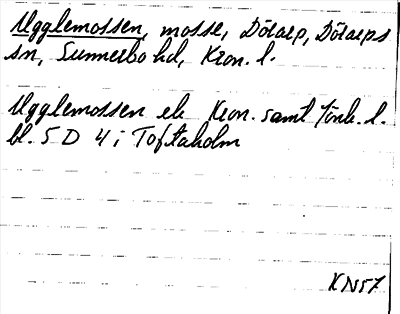 Ugglemossen, mosse, Dötarp, Dötarps
sn, Sunnerbo hd, Kron. l.
Ugglemossen ek Kron. samt Jönk. l.
bl. 5 D 4 i Toftaholm
KN57